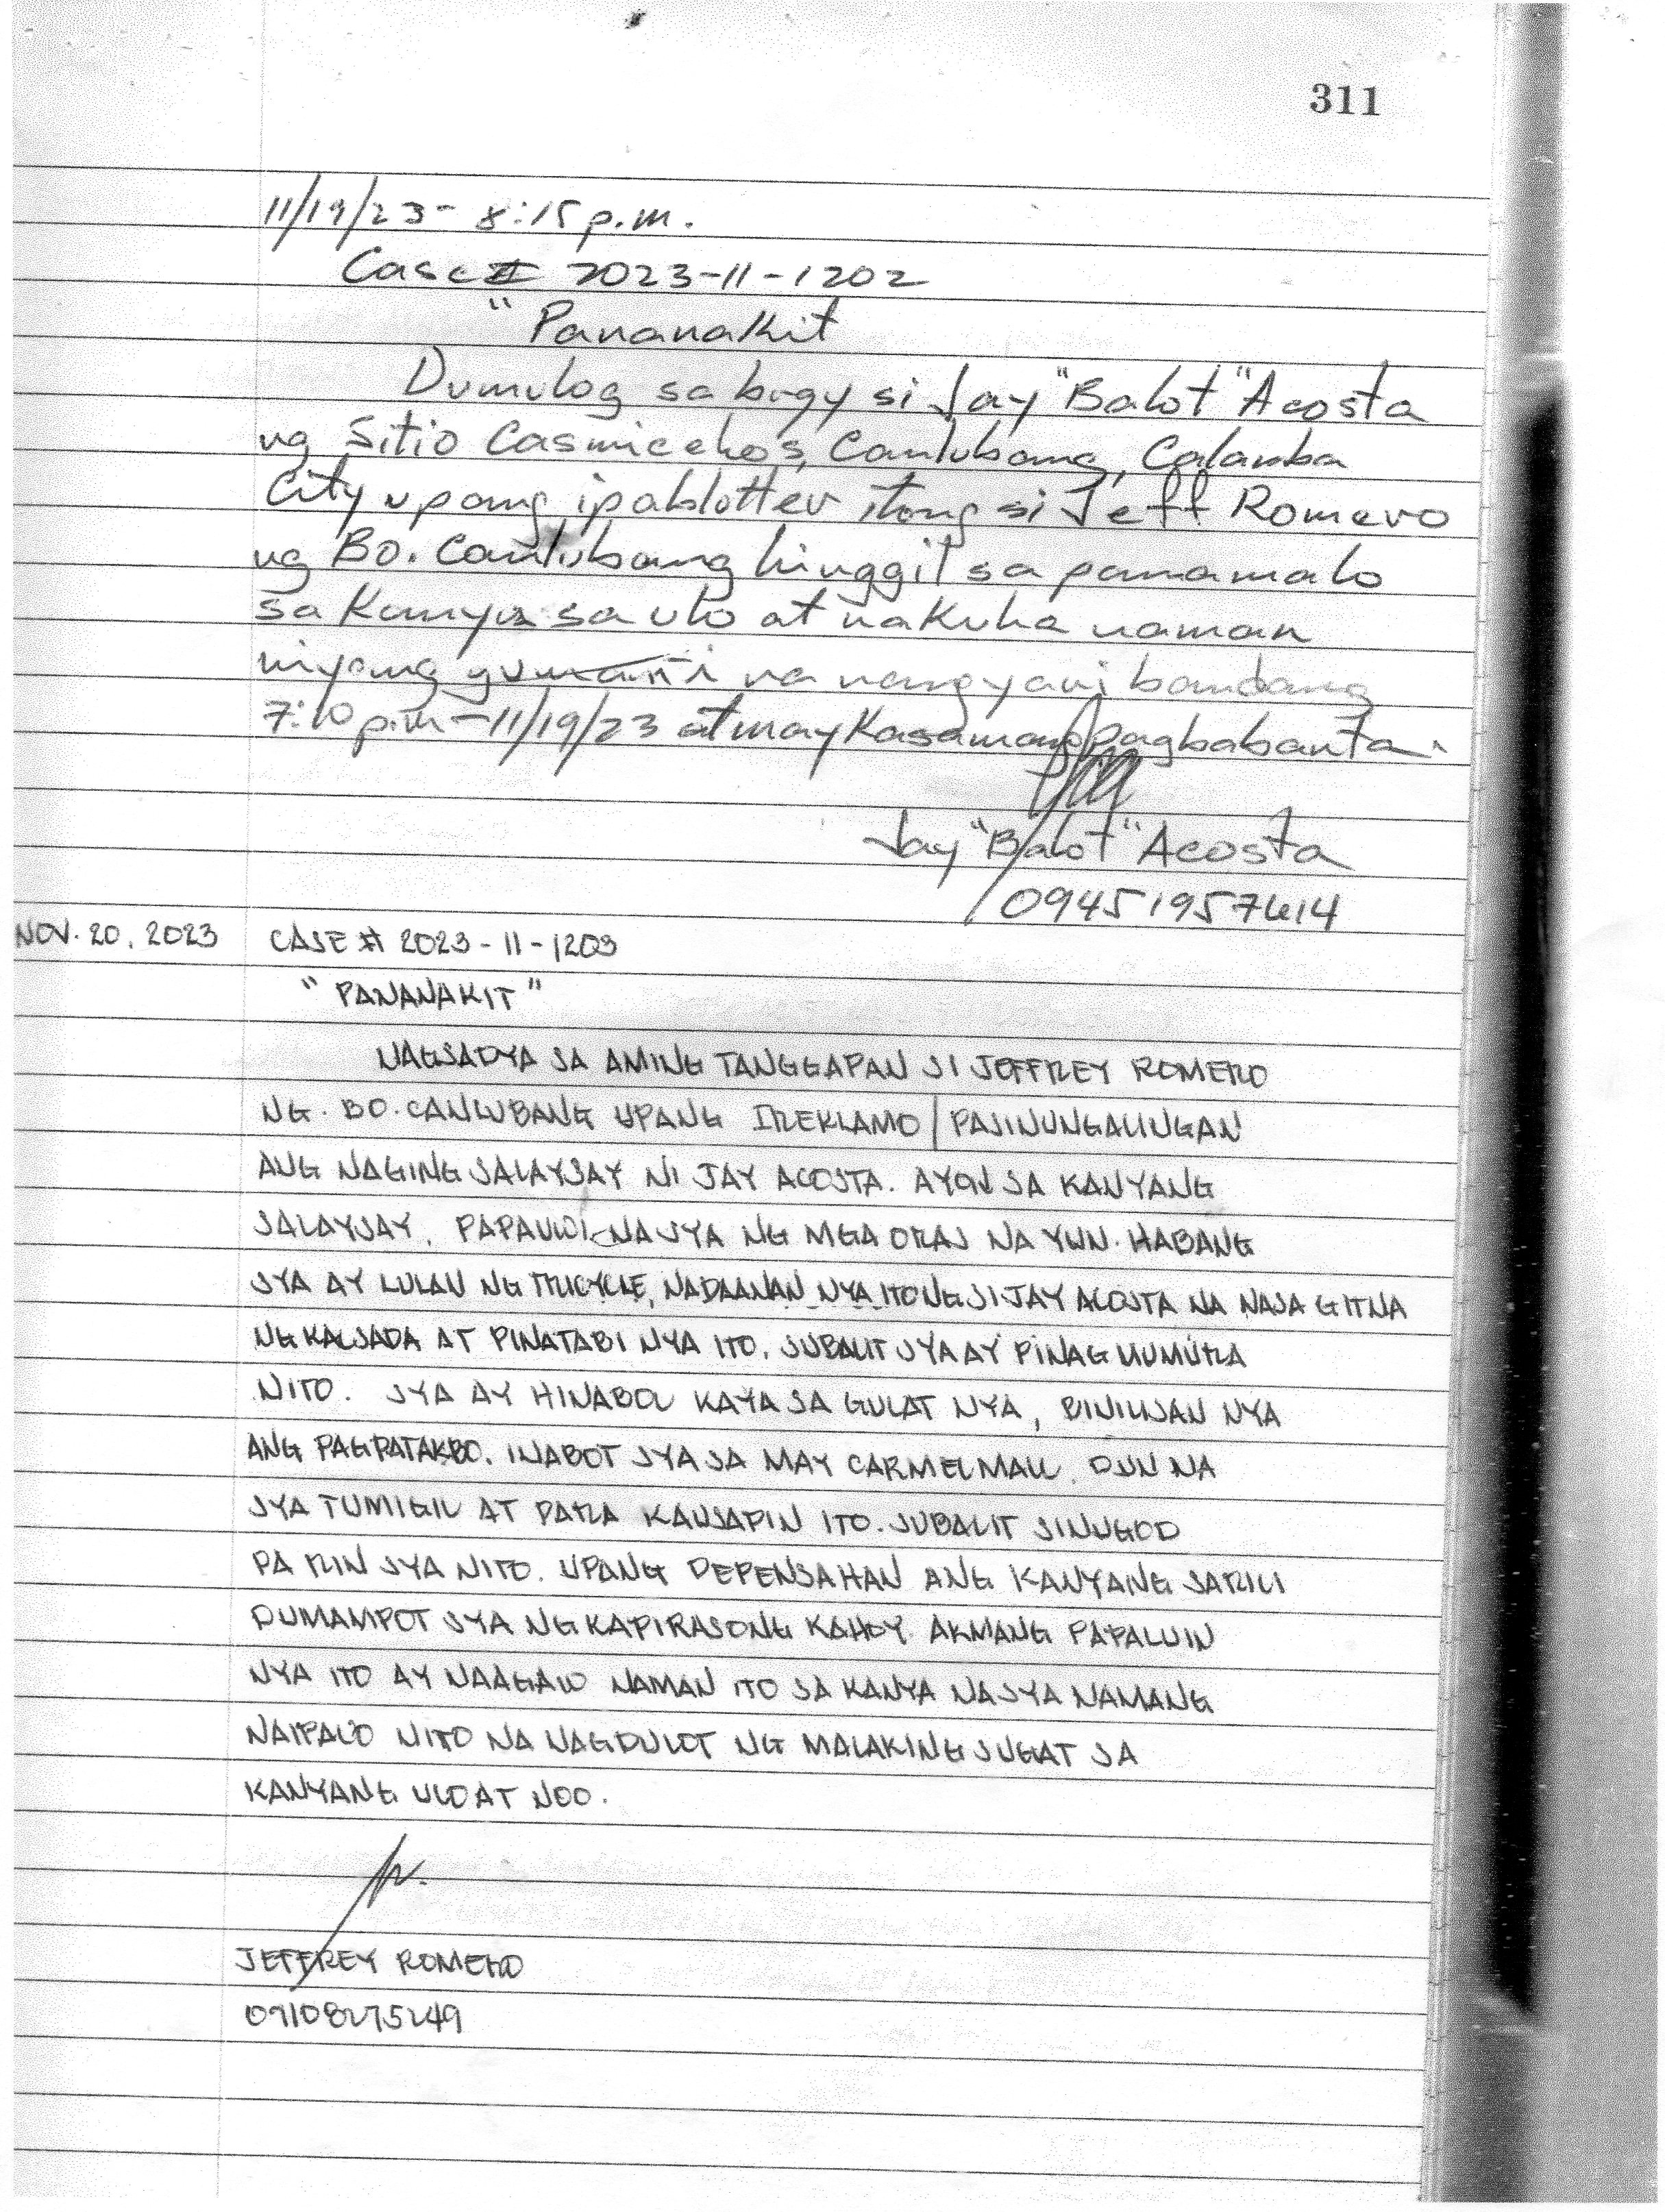 311
11/19/23 - 8:15 p.m.
Case # 2023-11-1202
"Pananakit
Dumulog sa brgy si Jay "Balot" Acosta
ng Sitio Casmicehos, Canlubang, Calamba
City upang ipablotter itong si Jeff Romero
ng Bo. Canlubang hinggil sa pamamalo
sa kanya sa ulo at nakuha naman
niyang gumanti na nangyari bandang
7:10 p.m - 11/19/23 at may kasamang pagbabanta.
Jay "Balot" Acosta
09451957614
NOV. 20, 2023 CASE # 2023-11-1203
"PANANAKIT"
NAGSADYA SA AMING TANGGAPAN SI JEFFREY ROMERO
NG. BO. CANLUBANG UPANG IREKLAMO/PASINUNGALINGAN
ANG NAGING SALAYSAY NI JAY ACOSTA. AYON SA KANYANG
SALAYSAY, PAPAUWI NA SYA NG MGA ORAS NA YUN. HABANG
SYA AY LULAN NG TRICYCLE, NADAANAN NYA ITONG SI JAY ACOSTA NA NASA GITNA
NG KALSADA AT PINATABI NYA ITO. SUBALIT SYA AY PINAGMUMURA
NITO. SYA AY HINABOL KAYA SA GULAT NYA, BINILISAN NYA
ANG PAGPATAKBO. INABOT SYA SA MAY CARMELMALL. DUN NA
SYA TUMIGIL AT PARA KAUSAPIN ITO. SUBALIT SINUGOD
PA RIN SYA NITO. UPANG DEPENSAHAN ANG KANYANG SARILI
DUMAMPOT SYA NG KAPIRASONG KAHOY. AKMANG PAPALUIN
NYA ITO AY NAAGAW NAMAN ITO SA KANYA NA SYA NAMANG
NAIPALO NITO NA NAGDULOT NG MALAKING SUGAT SA
KANYANG ULO AT NOO.
JEFFREY ROMERO
09108275249